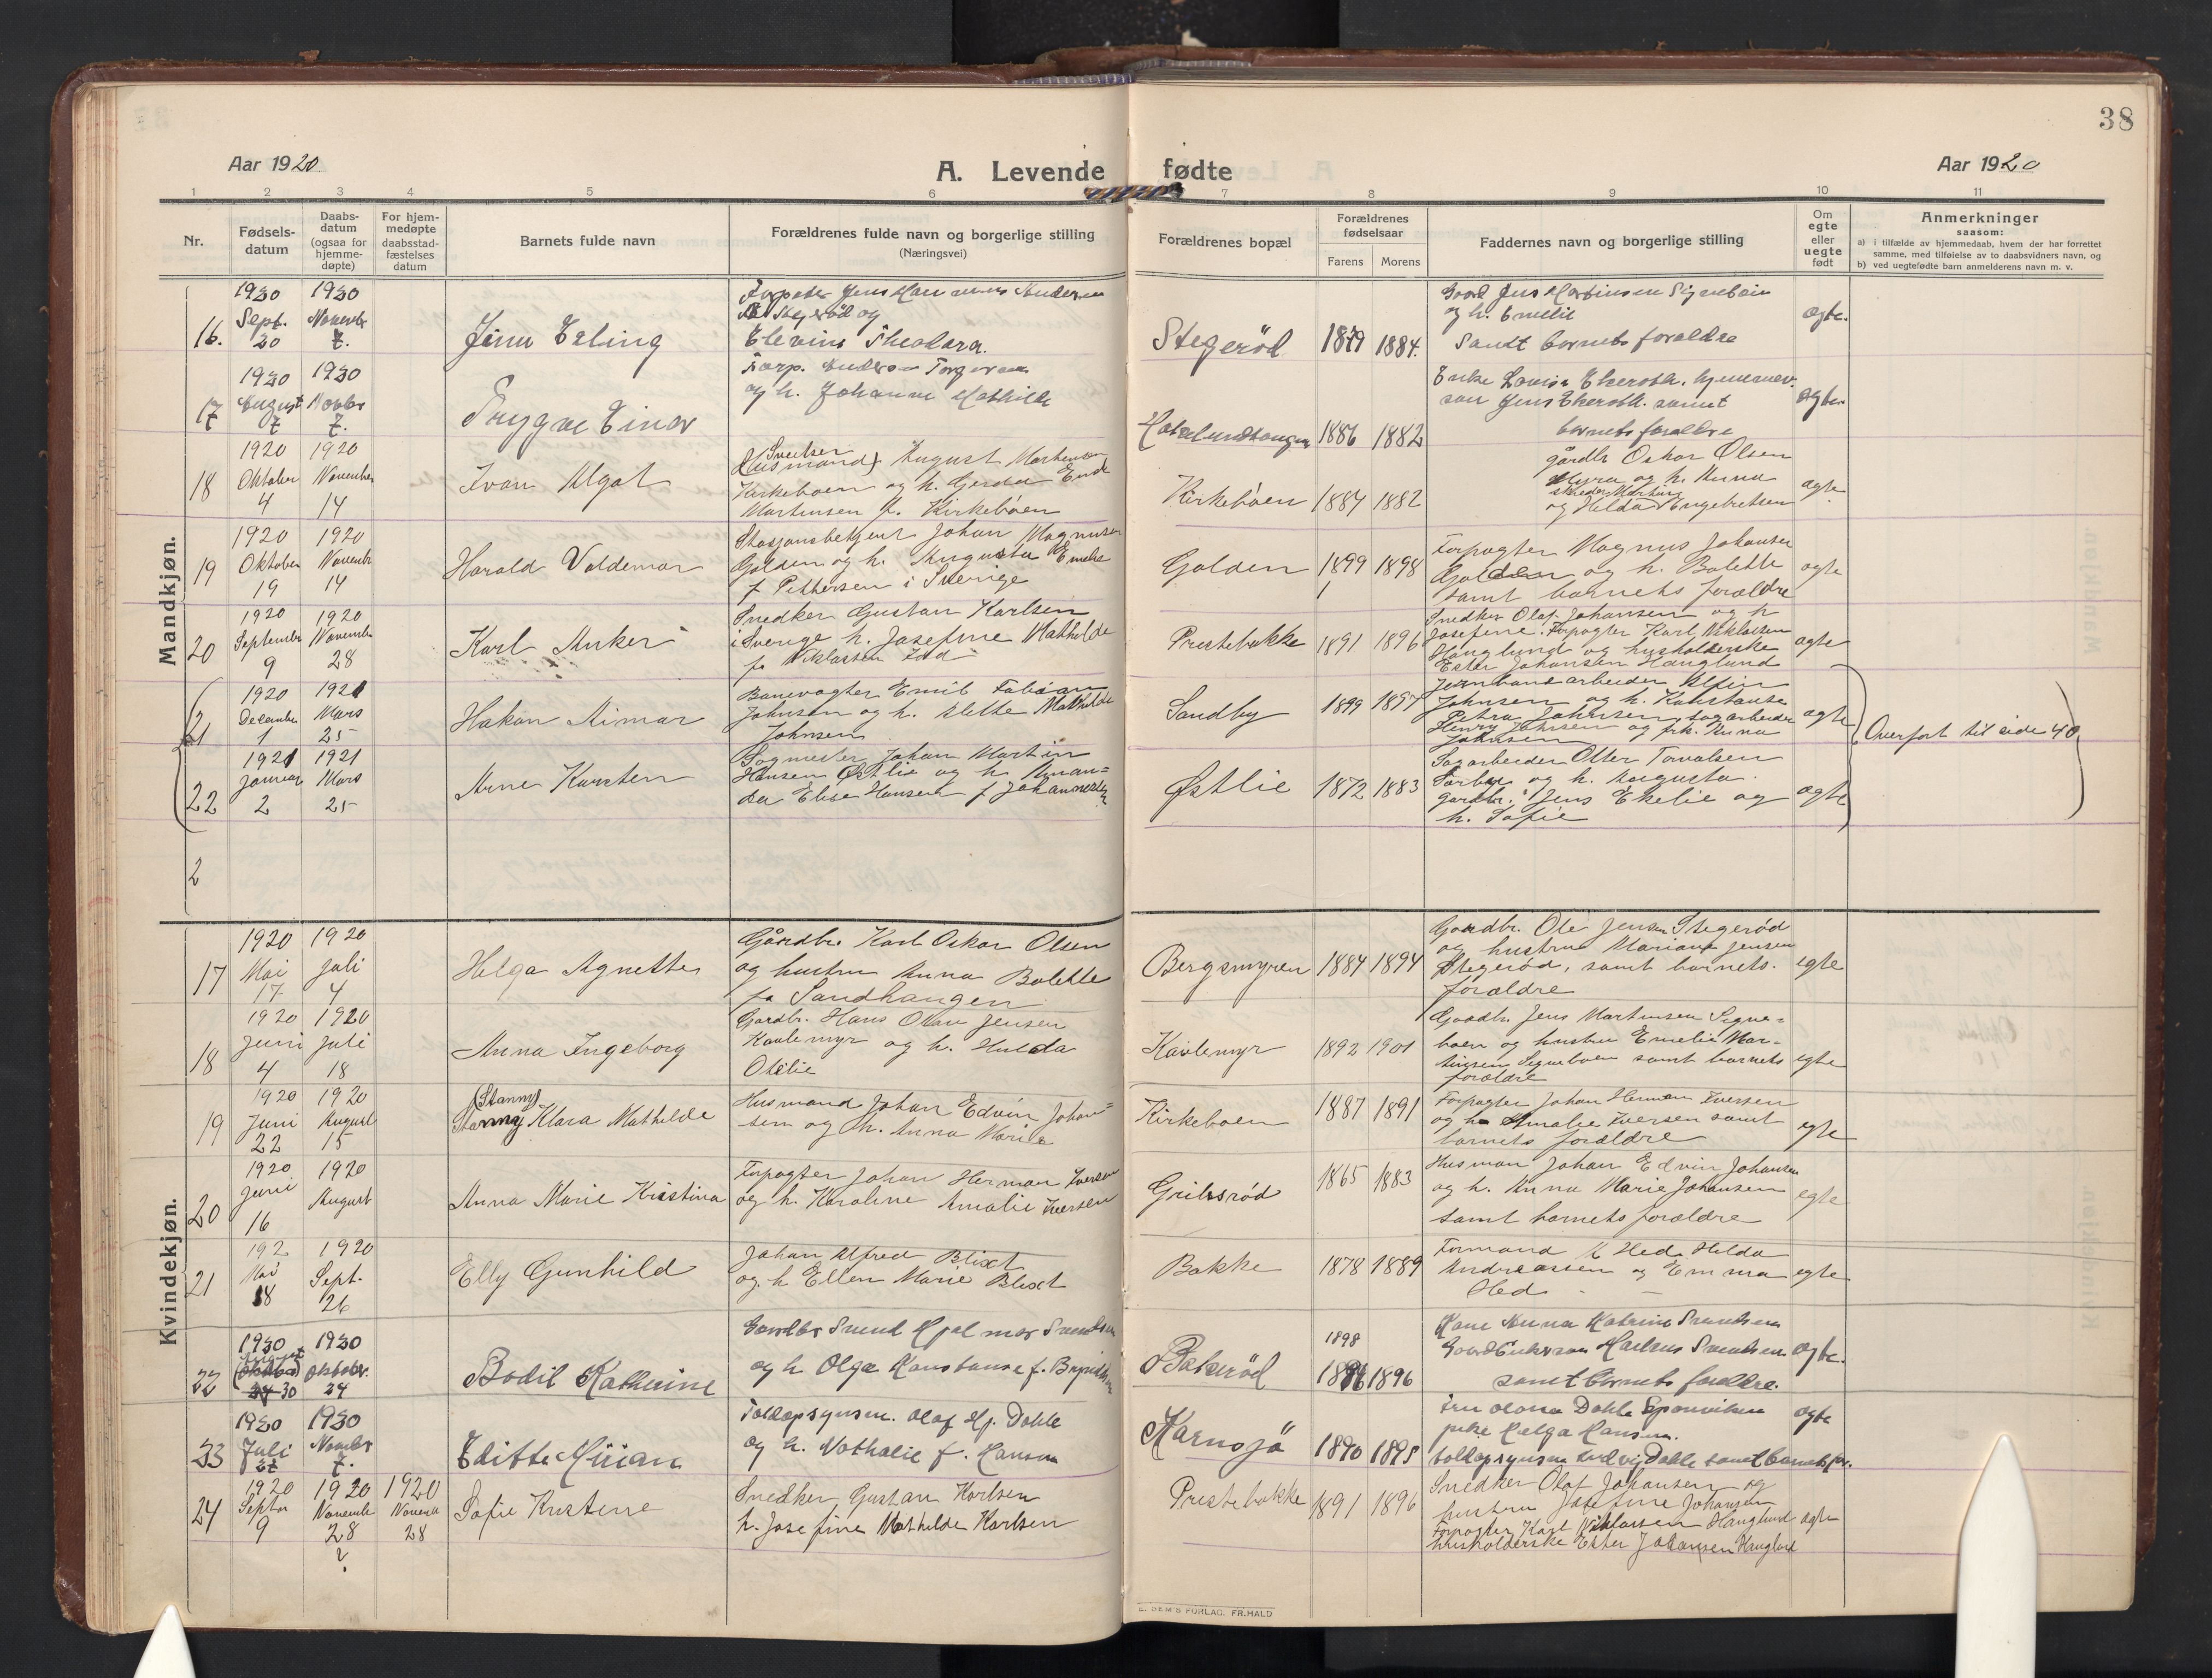 38
Aar 1920
A. Levende fødte
Aar 1920
1 2 3 4 5 6 7 8 9 10 11
Nr.
Fødsels-
datum
Daabs-
datum
(ogsaa for
hjemme-
døpte)
For hjem-
medøpte
daabsstad-
fæstelses
datum
Barnets fulde navn
Forældrenes fulde navn og borgerlige stilling
(Næringsvei)
Forældrenes bopæl
Forældrenes
fødselsaar
Farens Morens
Faddernes navn og borgerlige stilling
Om
egte
eller
uegte
født
Anmerkninger
saasom:
a) i tilfælde av hjemmedaab, hvem der har forrettet
samme, med tilføielse av to daabsvidners navn, og
b) ved uegtefødte barn anmelderens navn m. v.
Mandkjøn.
1920 1920
16. Sept. 20 Novembr 7. Erling
Stegerød og
Elevine Theodora.
Stegerød 1879 1884.
Gaard Jens Martinsen Signebøin
og h. Emelie
Samt barnets forældre
ægte.
1920 1920
17 August 7 Novbr 7. Trygve Einar
og h. Johanne Mathilde
1886 1882
Enke Lovise Ekeroth.
Jens Ekeroth. samt
barnets forældre
ægte
1920 1920
18 Oktober 4 November 14 Ivan Algot
August Martensen
Kirkebøen og h. Gerda
Martinsen f. Kirkebøen
Kirkebøen 1884 1882
gårdbr Oskar Olsen
Myra og h. Anna
og Helda Engebretsen
ægte
1920 1920
19 Oktober 19 Novembr 14 Harald Valdemar
Stasjonsbetjent Johan Magnusen
Golden og h. Augusta Emelie
f Pettersen i Sverige
Golden 1899 1898
Forpagter Magnus Johansen
Golden og h. Bolette
samt barnets forældre
ægte
1920 1920
20 September 9 November 28 Karl Anker
Snedker Gustav Karlsen
i Sverige h. Josefine Mathilde
f. Niklassen Idd
Prestebakke 1891 1896
Snedker Olaf Johansen og h
Josefine. Forpagter Karl Niklassen
Hauglund og husholderske
Ester Johansen Hauglund
ægte
1920 1921
21 December 1 Mars 25 Håkon Aimar
Banevogter Emil Fabian
Johnsen og h. Mathilde
Johnsen
Sandby 1899 1897
Jernbanearbeider
Johnsen og h. Konstanse
Petra Johnsen, sagarbeider
Henry Johnsen og frk. Anna
Johnsen
ægte
1921 1921
22 Januar 2 Mars 25 Arne Karsten
Sagmester Johan Martin
Hansen Østlie og h. Aman=
da Elise Hansen f Johannessen
Østlie 1872 1883
Sagarbeider Otter Torvalsen
og h. Augusta.
gardbr. Jens Ekelie og
h. Sofie
ægte
Overført til side 40
2
Kvindekjøn.
1920 1920
17 Mai 17 Juli 4 Helga Agnette
Gårdbr. Karl Oskar Olsen
og hustru Anna Bolette
fø Sandhaugen
Bergsmyren 1884 1894
Gardbr. Ole Jensen Stegerød
og hustru Mariane Jensen
Stegerød, samt barnets.
forældre
egte
1920 1920
18 Juni 4 Juli 18 Anna Ingeborg
Gardbr. Hans Olav Jensen
Kavlemyr og h. Hulda
Otelie
Kavlemyr 1892 1901
Gaardbr. Jens Martinsen Signe=
boen og hustru Emelie Mar-
tinsen Signeboen samt barnets
forældre
egte
1920 1920
19 Juni 22 August 15 (Stanny)
Stanny Klara Mathilde
Husmand Johan Edvin Johan=
sen og h. Anna Marie
Kirkeboen 1887 1891
Forpagter Johan Herman Iversen
og h Amalie Iversen samt
barnets forældre
egte
1920 1920
20 Juni 16 August Anna Marie Kristina
Forpagter Johan Herman Iversen
og h. Karoline Amalie Iversen
Grilsrød 1865 1883
Husman Johan Edvin Johansen
og h. Anna Marie Johansen
samt barnets forældre
egte
192 1920
21 Mai 18 Sept. 26 Elly Gunhild
Johan Alfred Blixt
og h Ellen Marie Blixt
Bakke 1878 1889
Formand K Hed. Helda
Andreassen og Emma
Hed.
egte
1920 1920
22 August 30 Oktober. 24 Bodil Katherine
Gaardbr Svend Hjalmar Svendsen
og h Olga Konstanse f.
Bakerød 1898 1896
Kone Anna Katrine Svendsen
samt barnets forældre.
ægte.
1920 1920
23 Juli Novbr 7. Editte Miriam
Toldopsynsm. Olaf Hj. Dahle
og h. Nathalie f. Hansen
Kornsjø 1890 1895
Fru Olava Dahle Sponviken
pike Helga Hansen.
toldopsynsm Ludvig Dahle samt barnets for.
ægte
1920 1920 1920
24 Septbr 9 Novembr 28 Novembr 28 Sofie Kristine
Snedker Gustav Karlsen
h. Josefine Mathilde Karlsen
Prestebakke 1891 1896
Snedker Olaf Johansen og
hustru Josefine Johansen
Forpagter Karl Niklassen Hauglund
husholderske Ester Johansen Hauglund
ægte
?
E. SEM'S FORLAG, FR.HALD